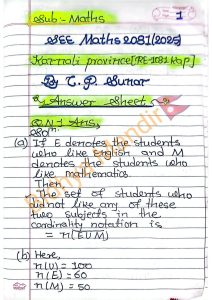 Sub - Maths
1
SEE Maths 2081(2025)
Karnali province[RE-1081'Kap']
By C.P. Sunar
Answer Sheet
Q.N.1 Ans,
Soln
(a) If E denotes the students
who like english and M
denotes the students who
like mathematics.
Then,
The set of students who
did not like any of these
two subjects in the
cardinality notation is
= n(EUM)
(b) Here,
n(U) = 100
n(E) = 60
n(M) = 50